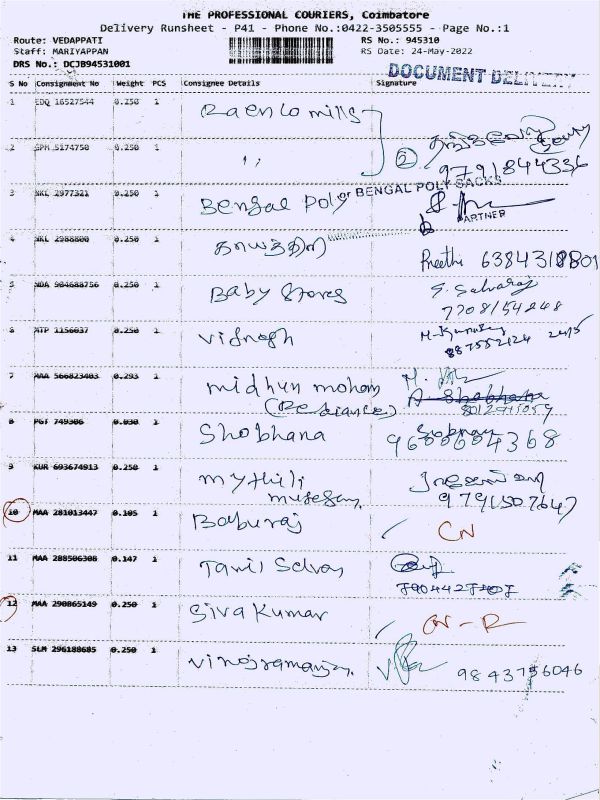 THE PROFESSIONAL COURIERS, Coimbatore
Delivery Runsheet - P41 - Phone No.:0422-3505555 - Page No.:1
Route: VEDAPPATI RS No.: 945310
Staff: MARIYAPPAN RS Date: 24-May-2022
DRS No.: DCJB94531001
DOCUMENT DELIVERY
S No Consignment No Weight PCS Consignee Details Signature
1 EDQ 16527544 0.250 1 Raenlo mills
2 GPM 5174750 0.250 1 " 2
9791844336
3 NKL 2977321 0.250 1 Bengal Poly
or BENGAL POLY SACKS
PARTNER
4 NKL 2988800 0.250 1 காயத்திரி Preethi
5 NDA 904688756 0.250 1 Baby Stores S. Selvaraj
7708154248
6 MTP 1156037 0.250 1 Vignesh
24/5
7 MAA 566823403 0.293 1 midhun mohan
(Resiance)
8 PGT 749306 0.030 1 Shobhana
9600604368
9 KUR 693674913 0.250 1 mythili
murugesan 9791507647
10 MAA 281013447 0.105 1 Baburaj CN
11 MAA 288506308 0.147 1 Tamil Selvan
12 MAA 290865149 0.250 1 Siva Kumar CN-R
13 SLM 296188685 0.250 1 9843756046